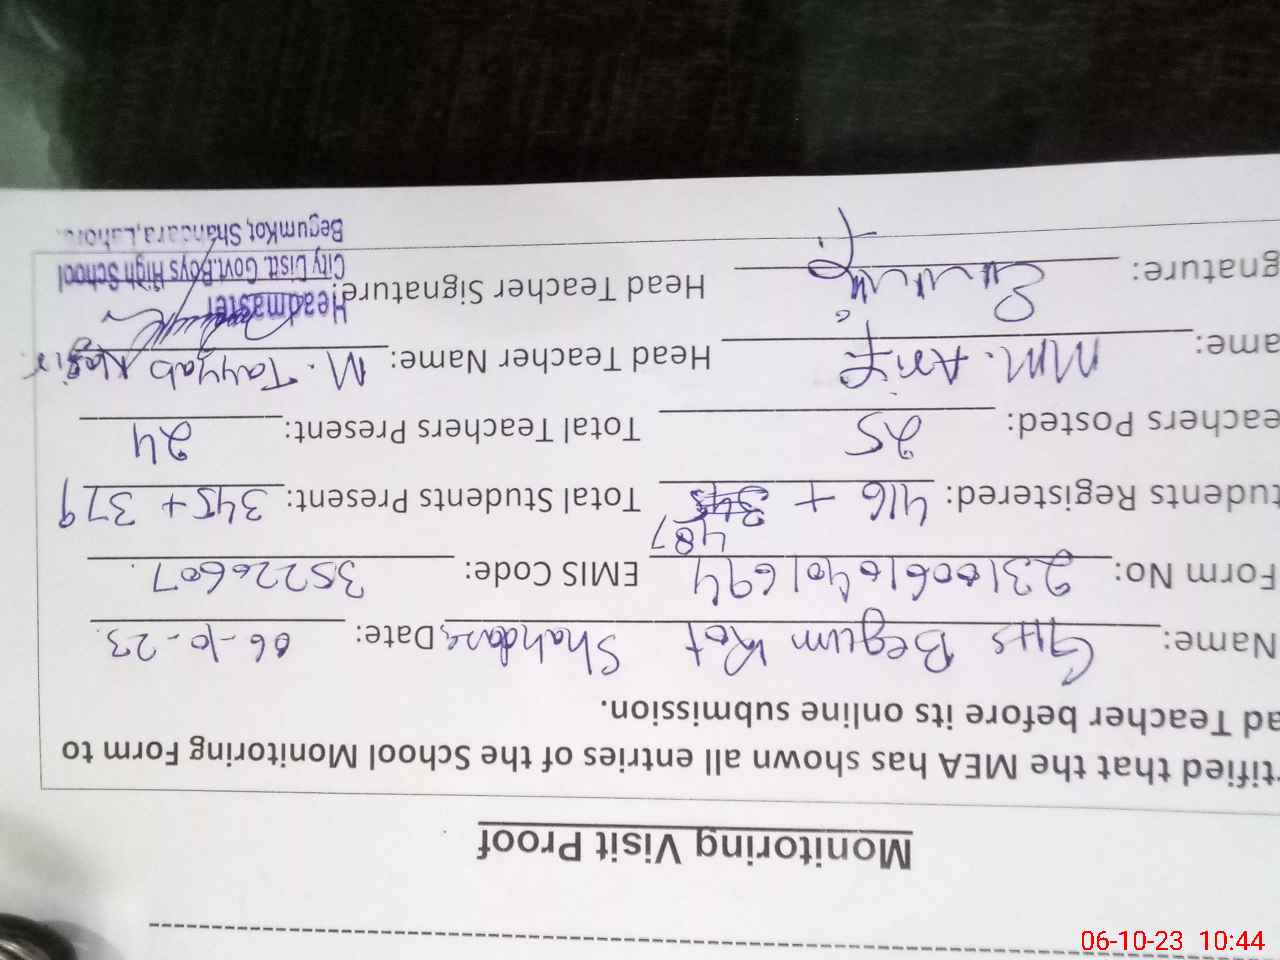 Monitoring Visit Proof
rtified that the MEA has shown all entries of the School Monitoring Form to
ad Teacher before its online submission.
Name: GHS Begum Kot Shahdara Date: 06-10-23
Form No: 23100610401694 EMIS Code: 35226607
487
tudents Registered: 416 + 345 Total Students Present: 345 + 379
eachers Posted: 25 Total Teachers Present: 24
ame: MM. Arif Head Teacher Name: M. Tayyab Nasir
gnature: Head Teacher Signature:
Headmaster
City Distt. Govt.Boys High School
BegumKot, Shahdara, Lahore.
06-10-23 10:44